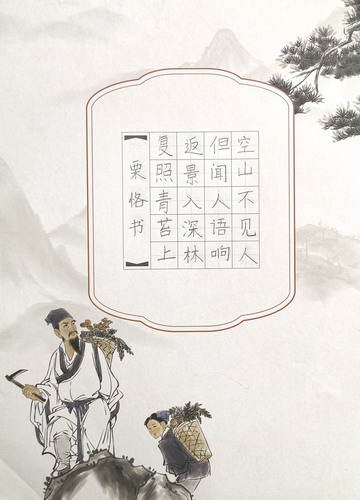 空山不见人
但闻人语响
返景入深林
复照青苔上
【栗恪书】